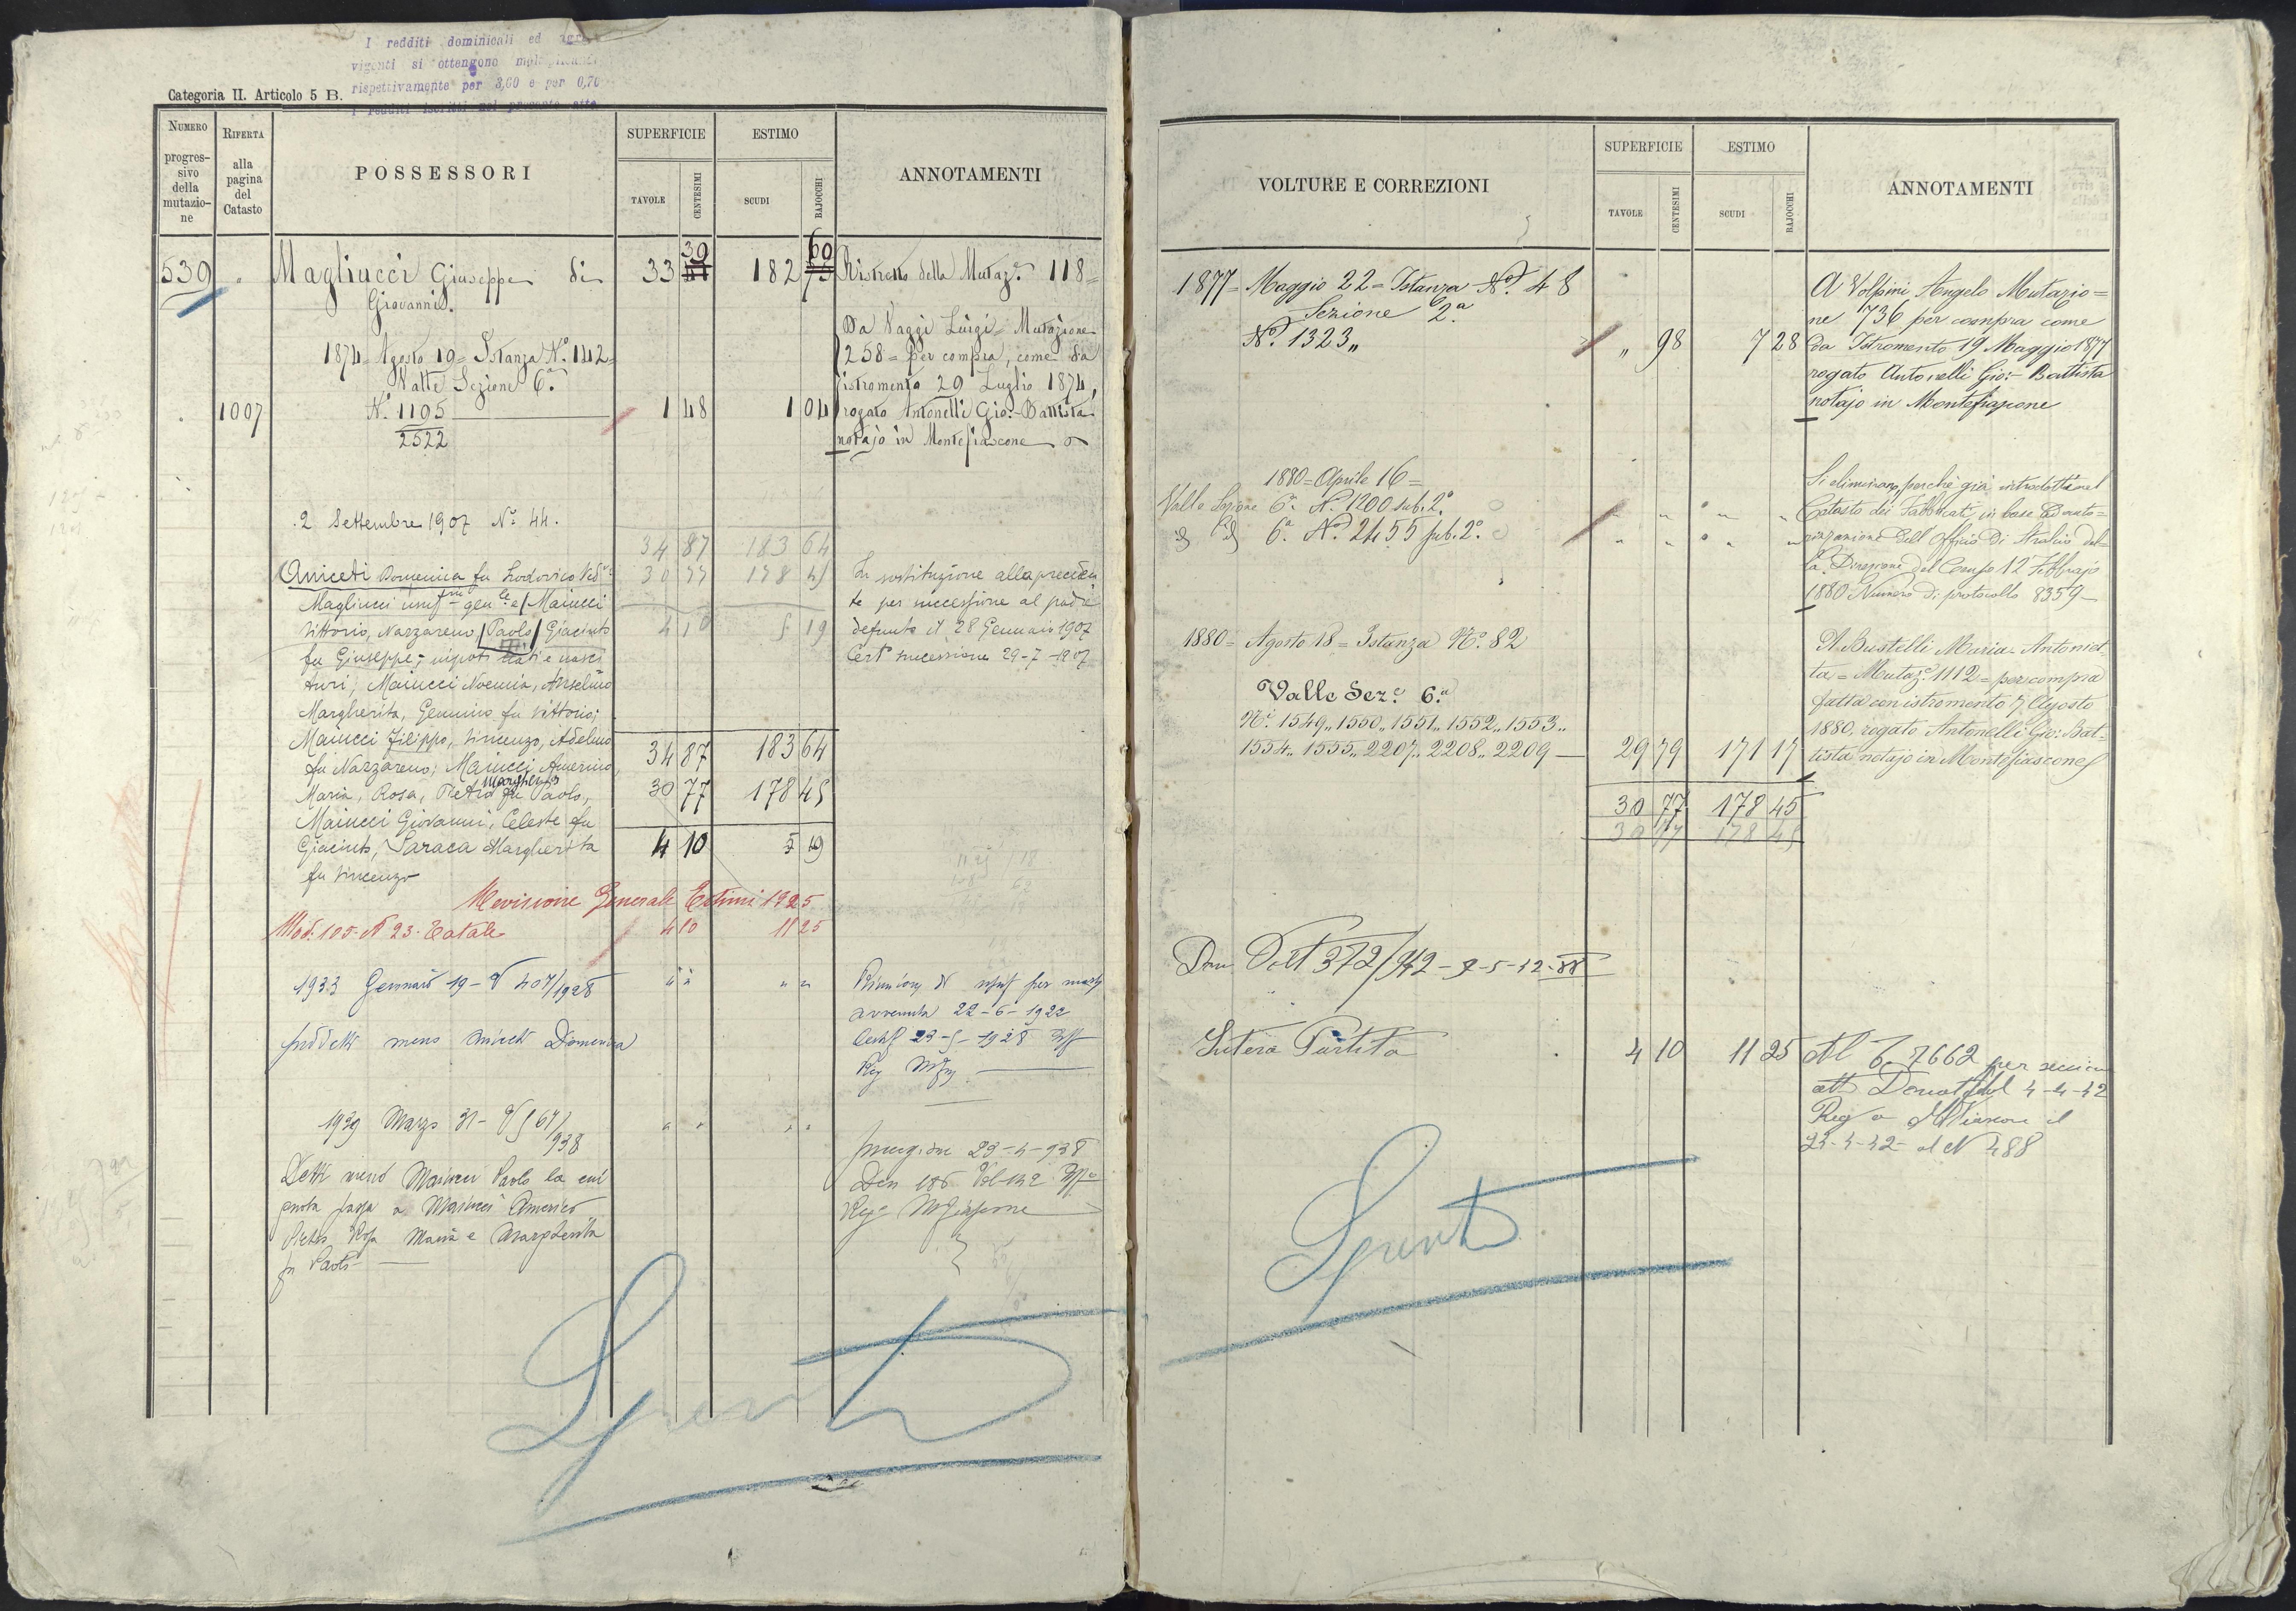 I redditi dominicali ed
vigenti si ottengono
rispettivamente per 3,60 e per 0,70
Categoria II. Articolo 5 B.
NUMERO progressivo della mutazione
RIFERTA alla pagina del Catasto
POSSESSORI
SUPERFICIE
TAVOLE
CENTESIMI
ESTIMO
SCUDI
BAJOCCHI
ANNOTAMENTI
539 Magliucci Giuseppe di 33 39 182 60 Ristretto della Mutaz.e 118=
Giovanni.
Da Vaggi Luigi= Mutazione
1874= Agosto 19= Istanza N.o 142= 258= per compra, come da
Valle Sezione 6.a istromento 29 Luglio 1874,
1007 N.o 1195 1 48 1 04 rogato Antonelli Gio:-Battista
2522 notajo in Montefiascone
2 Settembre 1907 N.o 44.
34 87 183 64
Aniceti Domenica fu Lodovico Ved. 30 77 178 45 In sostituzione alla preceden
Magliucci usuf.ria gen.le e Maiucci te per successione al padre
Vittorio, Nazzareno, Paolo, Giacinto 4 10 5 19 defunto il 28 Gennaio 1907
fu Giuseppe; nipoti nati e nasci Cert.o successione 29-7-1907
turi; Maiucci Noemia, Anselmo
Margherita, Gemmino fu Vittorio;
Maiucci Filippo, Vincenzo, Adelmo 34 87 183 64
fu Nazzareno; Maiucci Amerino,
Margherita
Maria, Rosa, Pietro fu Paolo, 30 77 178 45
Maiucci Giovanni, Celeste fu
Giacinto, Saraca Margherita 4 10 5 19
fu Vincenzo
Revisione Generale Estimi 1925
Mod. 105- N 23- Totale 4 10 11 25
1933 Gennaio 19- V 407/1928 " " " " Riunione di usuf per morte
avvenuta 22-6-1922
predetti meno Aniceti Domenica 23-5-1928
Reg
1939 Marzo 31- V 567/938 " " " "
23-4-938
Detti meno Maiucci Paolo la cui Den 186 Vol 132
quota passa a Maiucci Americo Reg
Pietro, Rosa Maria e Margherita
fu Paolo
Spenta
VOLTURE E CORREZIONI
SUPERFICIE
TAVOLE
CENTESIMI
ESTIMO
SCUDI
BAJOCCHI
ANNOTAMENTI
1877= Maggio 22= Istanza N.o 48 A Volpini Angelo Mutazio=
Sezione 2.a ne 736 per compra come
N.o 1323 " 98 7 28 da Istromento 19 Maggio 1877
rogato Antonelli Gio:- Battista
notajo in Montefiascone
1880= Aprile 16= Si eliminano, perchè già introdotti nel
Valle Sezione 6.a N. 1200 sub. 2.o " " " " Catasto dei Fabbricati, in base ad auto=
6.a N.o 2455 sub. 2.o " " " " rizzazione dell'Officio di Stralcio del=
la Direzione del Censo 12 Febbrajo
1880 Numero di protocollo 8359
1880= Agosto 18= Istanza N.o 82 A Bustelli Maria Antoniet=
ta= Mutaz.e 1112= per compra
Valle Sez.e 6.a fatta con istromento 7 Agosto
N.i 1549,, 1550,, 1551,, 1552,, 1553,, 1880, rogato Antonelli Gio: Bat=
1554,, 1555,, 2207,, 2208,, 2209 29 79 171 17 tista notajo in Montefiascone
30 77 178 45
30 77 178 45
Volt 372/942
Intera Partita 4 10 11 25 Al 7662 per
4-4-42
Reg a
23-4-42- al N 488
Spenta